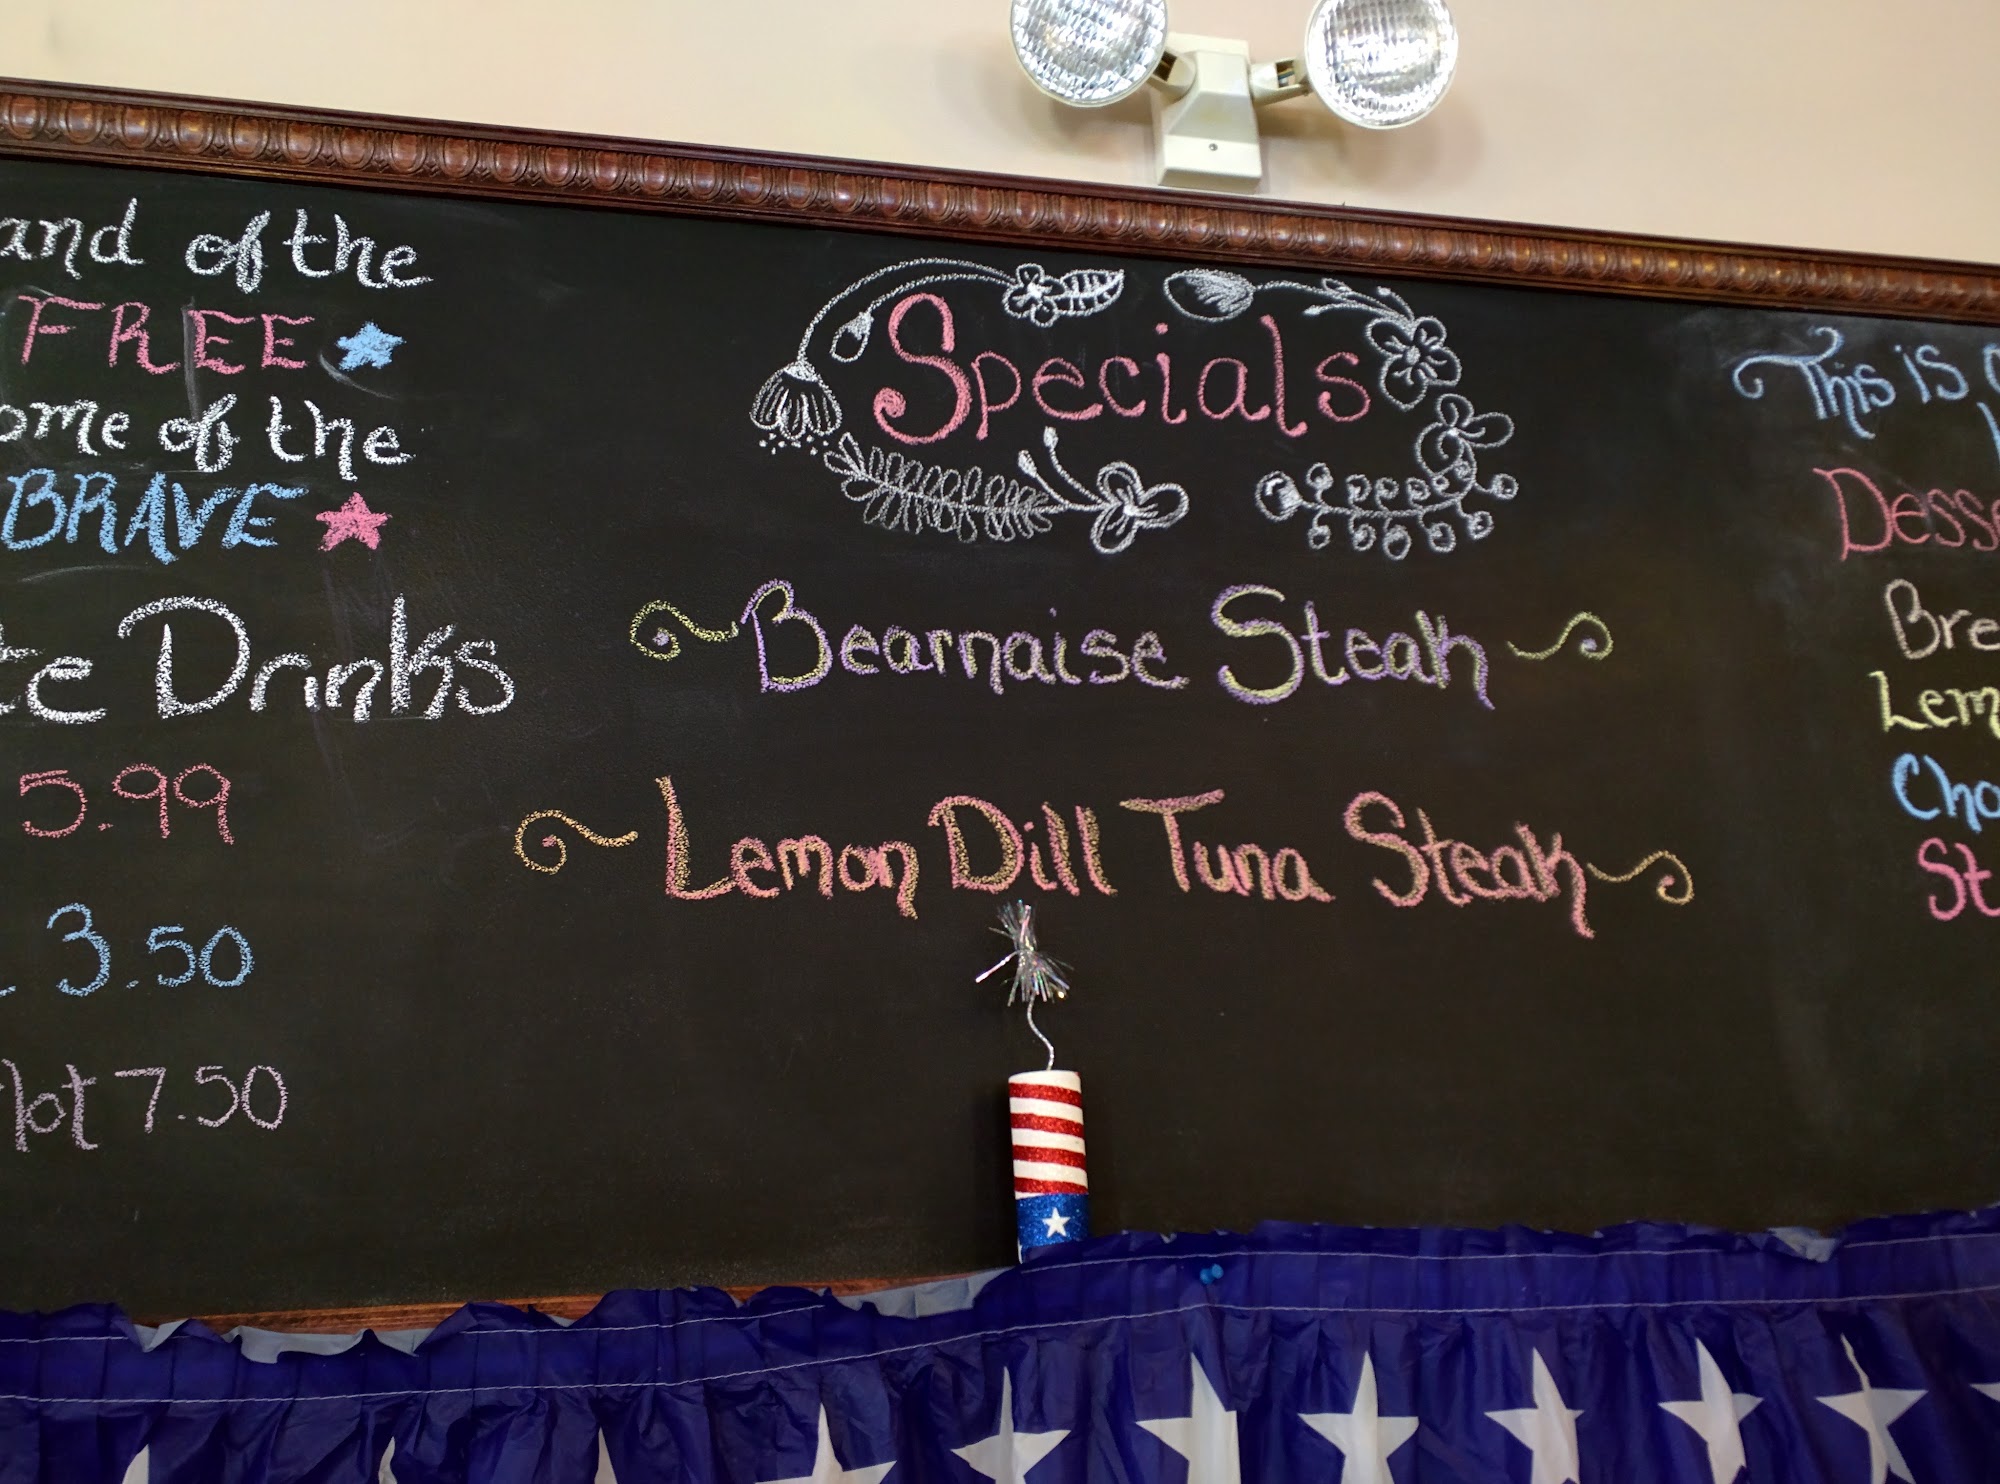 and of the
FREE
ome of the
BRAVE
te Drinks
5.99
3.50
lot 7.50
Specials
Bearnaise Steak
Lemon Dill Tuna Steak
This is
Desse
Bre
Lem
Cho
St